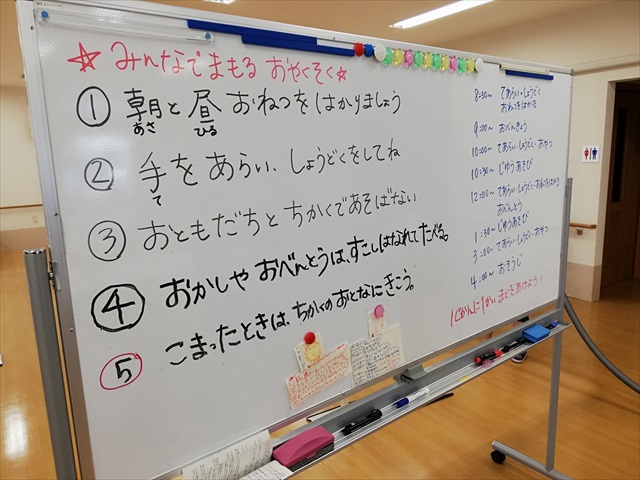 ☆みんなでまもる おやくそく☆
① 朝と昼 おねつをはかりましょう
あさ ひる
② 手をあらい、しょうどくをしてね
て
③ おともだちと ちかくであそばない
④ おかしや おべんとうは、すこしはなれて たべる。
⑤ こまったときは、ちかくの おとなに きこう。
8:30〜 てあらい・しょうどく
おねつをはかる
9:00〜 おべんきょう
10:00〜 てあらい・しょうどく・おやつ
10:30〜 じゆうあそび
12:00〜 てあらい・しょうどく・おねつをはかる
おべんとう
1:30〜 じゆうあそび
3:00〜 てあらい・しょうどく・おやつ
4:00〜 おそうじ
1じかんに1かい まどをあけよう!